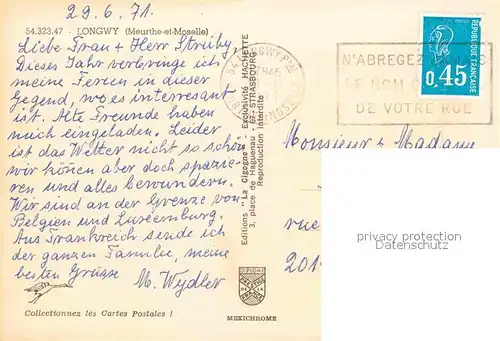 29.6.71.
54.323.47 - LONGWY (Meurthe-et-Moselle)
Liebe Frau + Herr Strüby,
Dieses Jahr verbringe ich
meine Ferien in dieser
Gegend, wo es interresant
ist. Alte Freunde haben
mich eingeladen. Leider
ist das Wetter nicht so schön
wir könen aber doch spazie-
ren und alles bewundern.
Wir sind an der Grenze von
Belgien und Luxemburg.
Aus Frankreich sende ich
der ganzen Familie, meine
besten Grüsse
M. Wydler
Collectionnez les Cartes Postales !
Editions "La Cigogne" - Exclusivité HACHETTE
3, place de Haguenau - 67-STRASBOURG
Reproduction interdite
MEXICHROME
54 LONGWY
N'ABREGEZ
LE NOM
DE VOTRE RUE
REPUBLIQUE FRANÇAISE
0,45
Monsieur + Madame
rue
201
privacy protection
Datenschutz